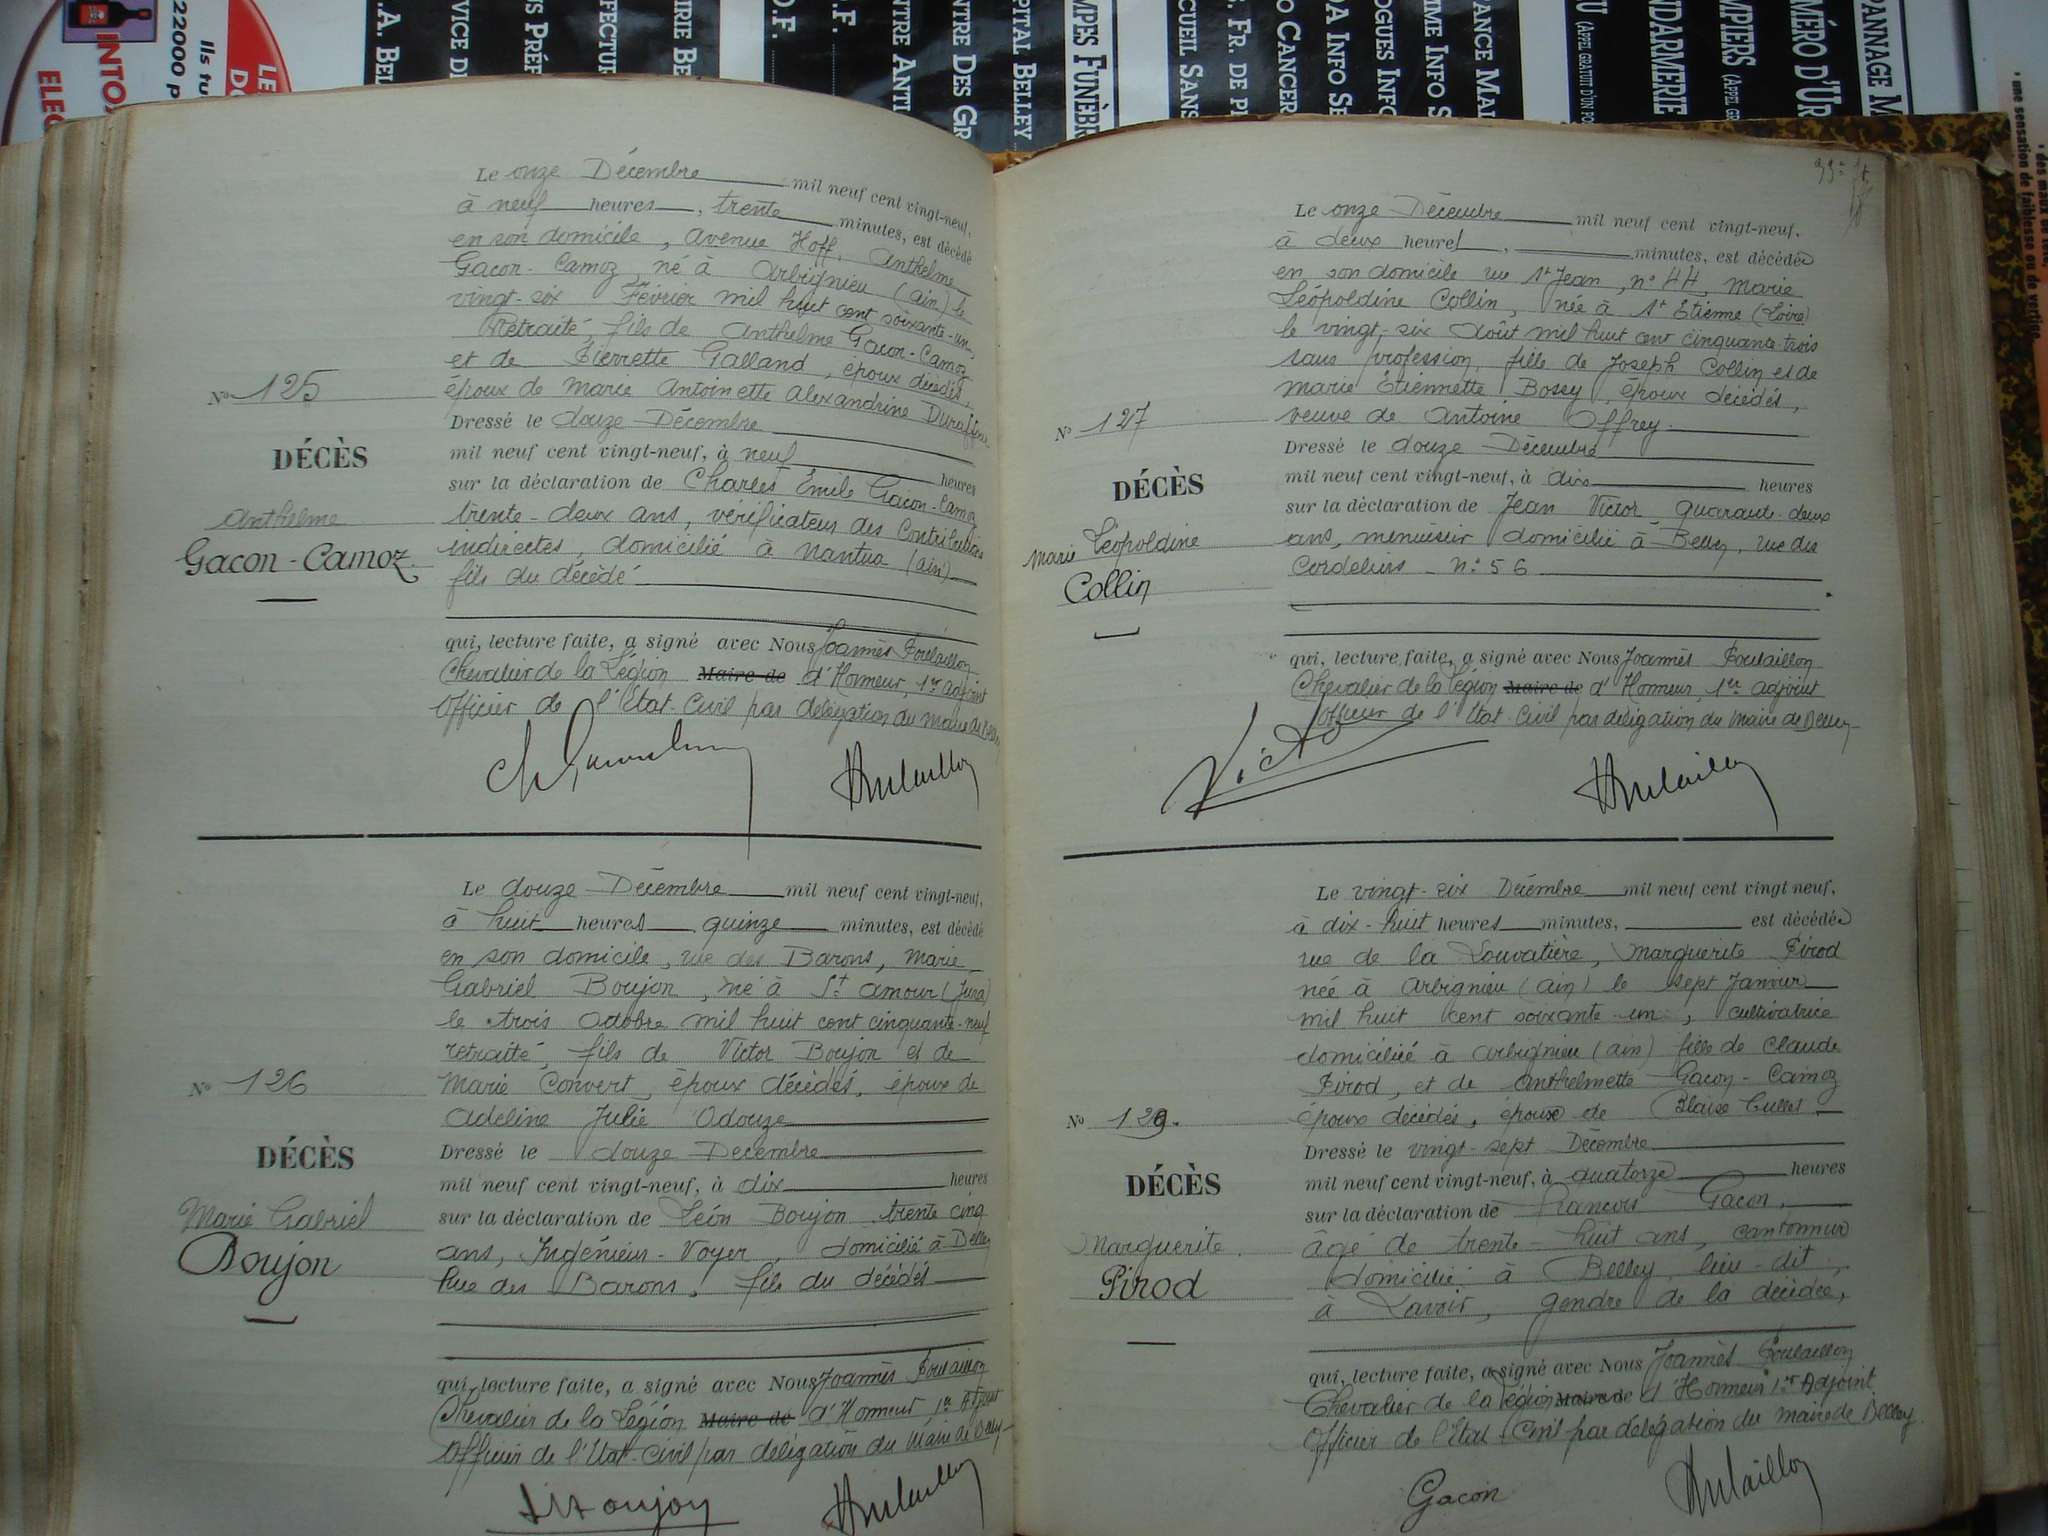 22000 p
Ils tu
LE
DO
INTOX
ELEC
.A. BEL
VICE D
IS PRÉF
FECTUR
IRIE BE
O.F.
R.F.
NTRE ANTI
NTRE DES GR
PITAL BELLEY
MPES FUNÈBR
CUEIL SANS
S. FR. DE P
O CANCER
DA INFO SE
OGUES INFO
MME INFO S
PANCE MAL
U (APPEL GRATUIT D'UN PO
NDARMERIE
MPIERS (APPEL GR
MÉRO D'UR
PANNAGE M
• des maux de tête,
• une sensation de faiblesse ou de vertige
Le onze Décembre mil neuf cent vingt-neuf,
à neuf heures, trente minutes, est décédé
en son domicile, avenue Hoff, Anthelme
Gacon-Camoz, né à Arbignieu (Ain) le
vingt-six Février mil huit cent soixante-un,
Retraité, fils de Anthelme Gacon-Camoz
et de Pierrette Galland, époux décédés,
époux de Marie Antoinette Alexandrine Durafour
No 125
DÉCÈS
Anthelme
Gacon-Camoz
Dressé le douze Décembre
mil neuf cent vingt-neuf, à neuf heures
sur la déclaration de Charles Émile Gacon-Camoz
trente-deux ans, vérificateur des Contributions
indirectes, domicilié à Nantua (Ain)
fils du décédé
qui, lecture faite, a signé avec Nous Joannès Poulaillon
Chevalier de la Légion Maire de d'Honneur, 1er adjoint
Officier de l'Etat-Civil par délégation du Maire de Belley
Le douze Décembre mil neuf cent vingt-neuf,
à huit heures quinze minutes, est décédé
en son domicile, rue des Barons, Marie
Gabriel Boujon, né à St Amour (Jura)
le trois Octobre mil huit cent cinquante-neuf
retraité, fils de Victor Boujon et de
Marie Convert, époux décédés, époux de
Adeline Julie Adouze
No 126
DÉCÈS
Marie Gabriel
Boujon
Dressé le douze Décembre
mil neuf cent vingt-neuf, à dix heures
sur la déclaration de Léon Boujon trente cinq
ans, Ingénieur-Voyer, domicilié à Belley
Rue des Barons, fils du décédés
qui, lecture faite, a signé avec Nous Joannès Poulaillon
Chevalier de la Légion Maire de d'Honneur 1er Adjoint
Officier de l'Etat-Civil par délégation du Maire de Belley
Boujon
Le onze Décembre mil neuf cent vingt-neuf,
à deux heures, minutes, est décédée
en son domicile rue St Jean, n° 44, Marie
Léopoldine Collin, née à St Etienne (Loire)
le vingt-six Août mil huit cent cinquante-trois
sans profession, fille de Joseph Collin et de
Marie Etiennette Bosey, époux décédés,
veuve de Antoine Offrey.
No 127
DÉCÈS
Marie Léopoldine
Collin
Dressé le douze Décembre
mil neuf cent vingt-neuf, à dix heures
sur la déclaration de Jean Victor quarante-deux
ans, menuisier domicilié à Belley, rue des
Cordeliers n° 56
qui, lecture faite, a signé avec Nous Joannès Poulaillon
Chevalier de la Légion Maire de d'Honneur, 1er adjoint
Officier de l'Etat-Civil par délégation du Maire de Belley
Victor
Le vingt-six Décembre mil neuf cent vingt neuf,
à dix-huit heures minutes, est décédée
rue de la Louvatière, Marguerite Pirod
née à Arbignieu (Ain) le sept Janvier
mil huit cent soixante-un, cultivatrice
domicilié à Arbignieu (Ain) fille de Claude
Pirod, et de Anthelmette Gacon-Camoz
époux décédés, épouse de Blaise Cullet
No 129.
DÉCÈS
Marguerite
Pirod
Dressé le vingt-sept Décembre
mil neuf cent vingt-neuf, à quatorze heures
sur la déclaration de François Gacon,
âgé de trente-huit ans, cantonnier
domicilié à Belley, lieu-dit,
à Lavoir, gendre de la décédée,
qui, lecture faite, a signé avec Nous Joannès Poulaillon
Chevalier de la Légion Maire de d'Honneur 1er Adjoint
Officier de l'Etat-Civil par délégation du Maire de Belley.
Gacon